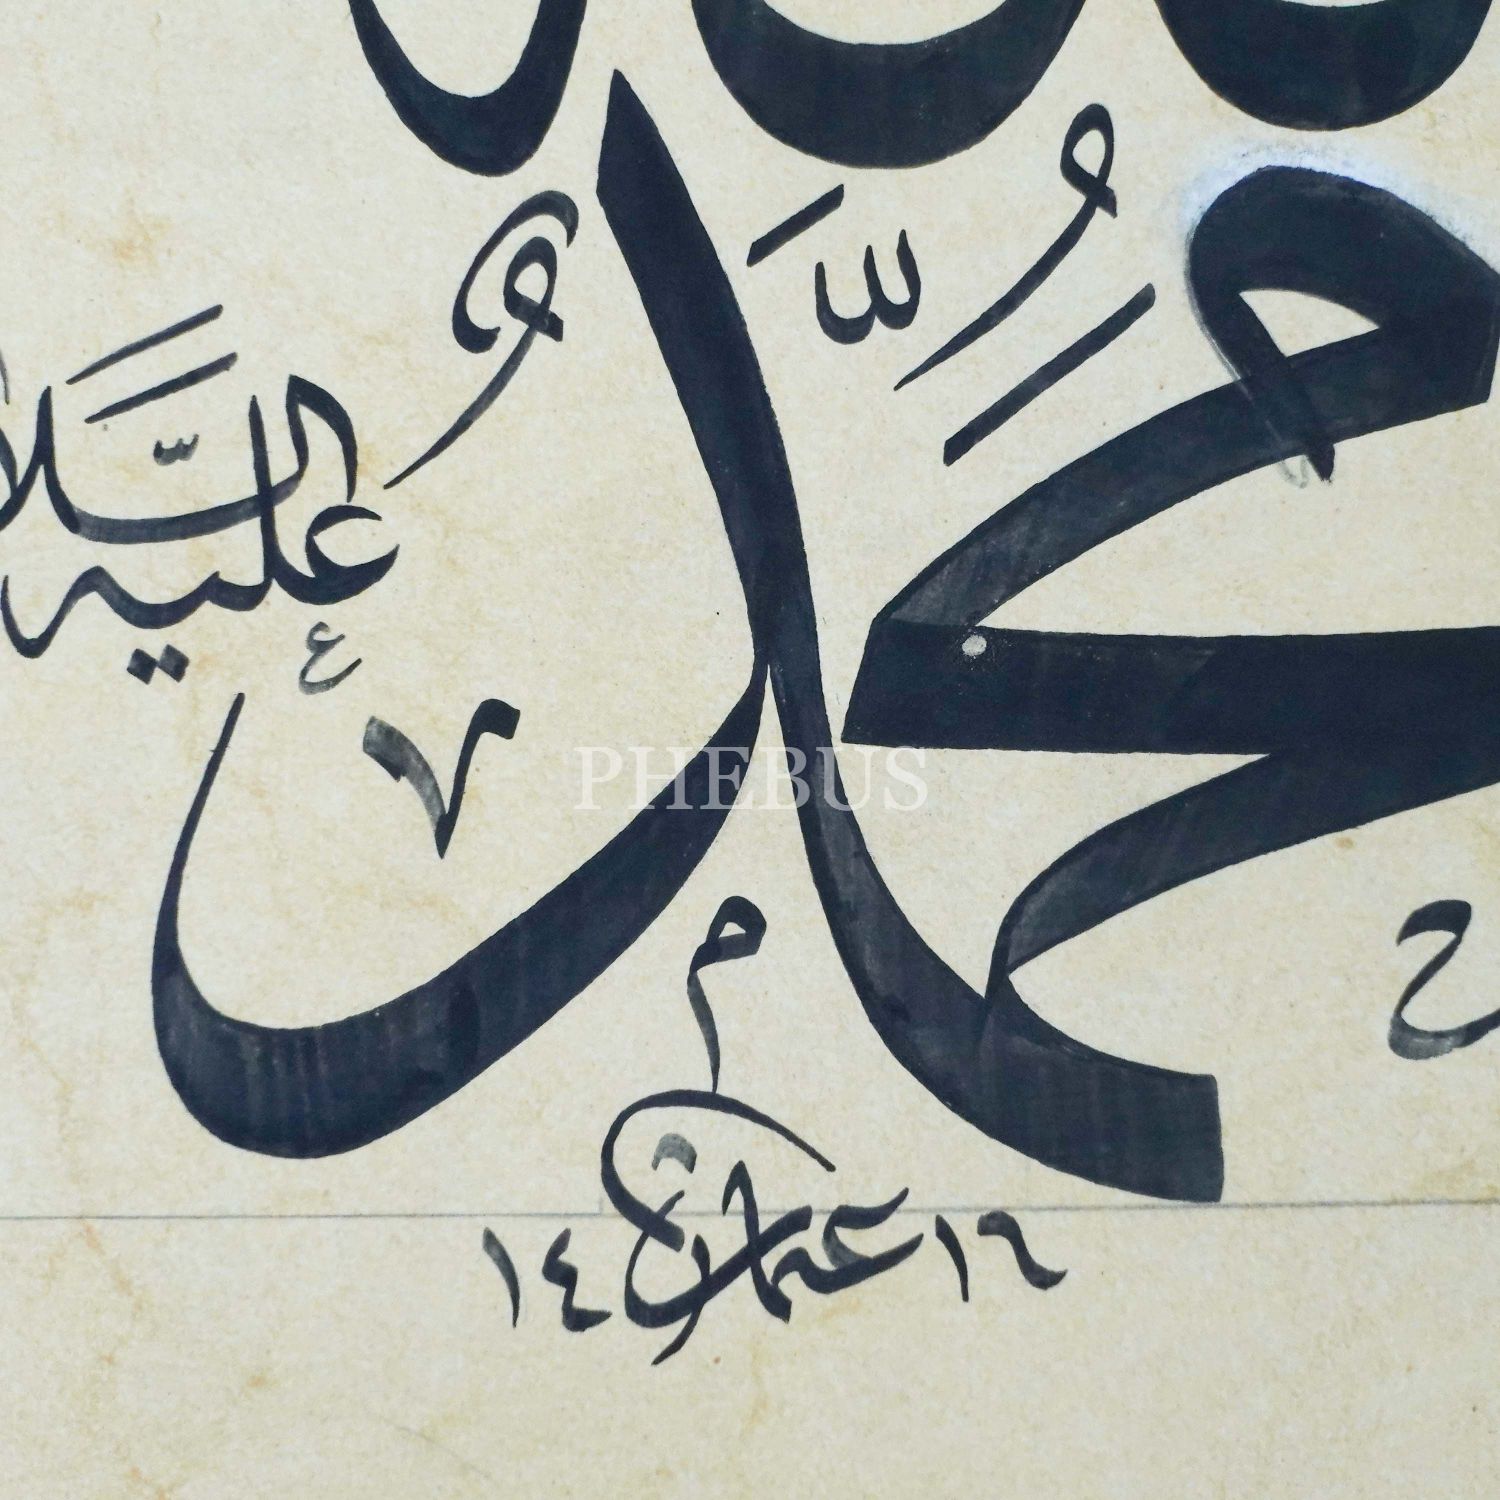 محمد
عليه السلا
PHEBUS
١٤ عثمان ١٦